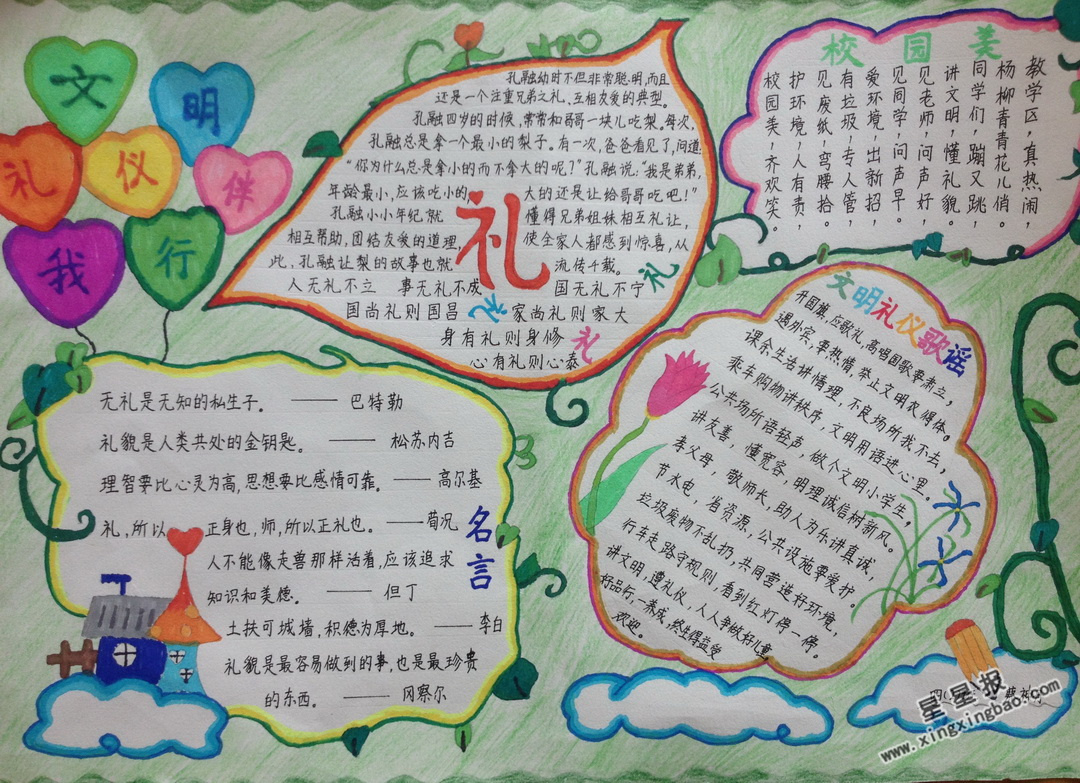 文明
礼仪伴
我行
孔融幼时不但非常聪明,而且
还是一个注重兄弟之礼、互相友爱的典型。
孔融四岁的时候,常常和哥哥一块儿吃梨。每次,
孔融总是拿一个最小的梨子。有一次,爸爸看见了,问道
“你为什么总是拿小的而不拿大的呢?”孔融说:“我是弟弟,
年龄最小,应该吃小的,大的还是让给哥哥吃吧!”
孔融小小年纪就懂得兄弟姐妹相互礼让,
相互帮助,团结友爱的道理,使全家人都感到惊喜,从
此,孔融让梨的故事也就流传千载。
礼
人无礼不立 事无礼不成 国无礼不宁
礼
国尚礼则国昌 礼 家尚礼则家大
身有礼则身修 礼
心有礼则心泰
校园美
教学区,真热闹,
杨柳青青花儿俏。
同学们,蹦又跳,
讲文明,懂礼貌。
见老师,问声好,
见同学,问声早。
爱环境,出新招,
有垃圾,专人管,
见废纸,弯腰拾。
护环境,人有责,
校园美,齐欢笑。
文明礼仪歌谣
升国旗,应敬礼,高唱国歌要肃立,
遇外宾,要热情,举止文明友得体。
课余生活讲情理,不良场所我不去,
乘车购物讲秩序,文明用语进心里。
公共场所语轻声,做个文明小学生,
讲友善,懂宽容,明理诚信树新风。
孝父母,敬师长,助人为乐讲真诚,
节水电,省资源,公共设施要爱护。
垃圾废物不乱扔,共同营造好环境,
行车走路守规则,看到红灯停一停。
讲文明,遵礼仪,人人争做好儿童
好品行,一养成,终生得益受
欢迎。
名言
无礼是无知的私生子。 —— 巴特勒
礼貌是人类共处的金钥匙。 —— 松苏内吉
理智要比心灵为高,思想要比感情可靠。——高尔基
礼,所以正身也,师,所以正礼也。——荀况
人不能像走兽那样活着,应该追求
知识和美德。 —— 但丁
土扶可城墙,积德为厚地。 ——李白
礼貌是最容易做到的事,也是最珍贵
的东西。 —— 冈察尔
星星报
www.xingxingbao.com